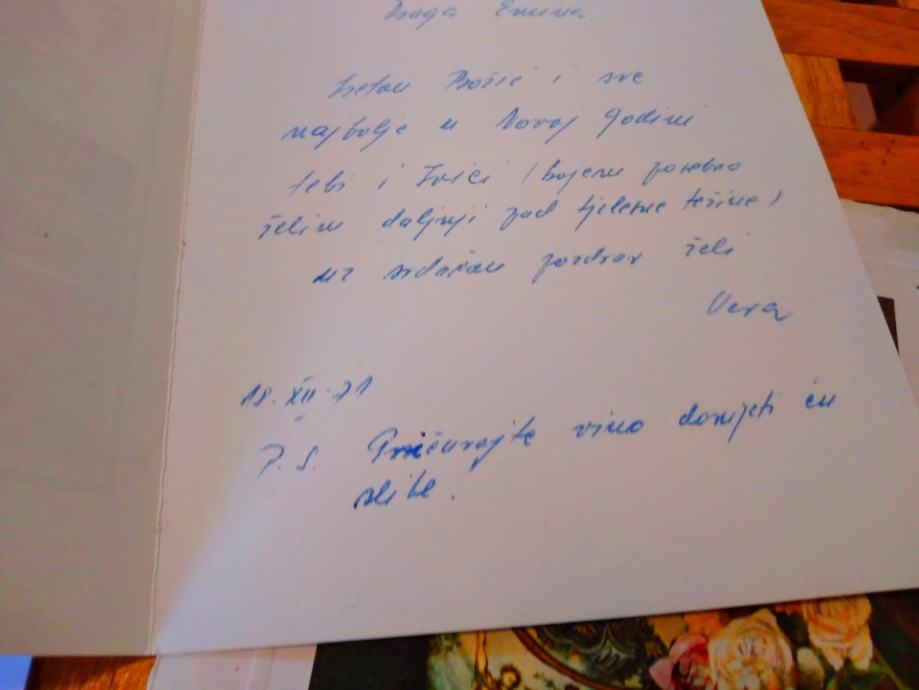 Draga Emina
Sretan Božić i sve
najbolje u Novoj godini
tebi i Ivici (kojem posebno
želim daljnji pad tjelesne težine)
uz srdačan pozdrav želi
Vera
18. XII. 71
P. S. Pričuvajte vino donijeti ću
slike.